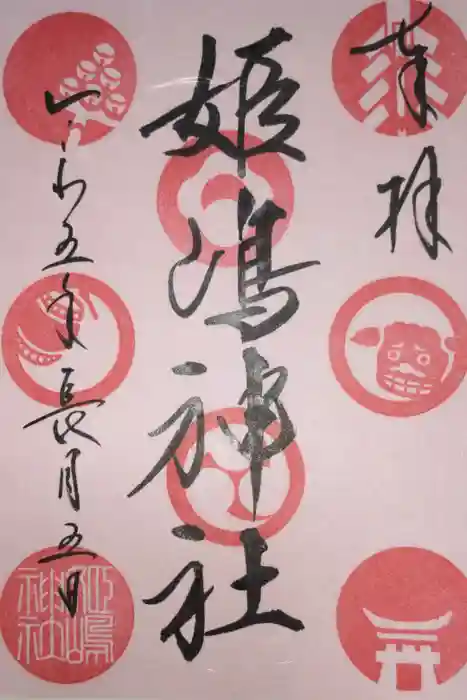 奉拝
姫嶋神社
令和五年長月五日
姫嶋神社